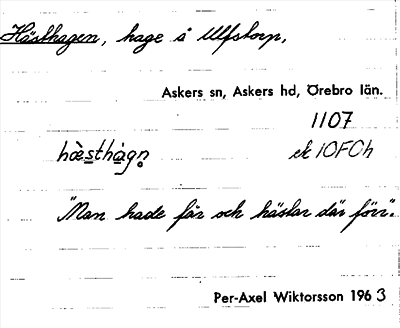 Hästhagen, hage å Ulfstorp,
Askers sn, Askers hd, Örebro län.
1107
hæ̀sthàgn̥ ek 10F0h
"Man hade får och hästar där förr".
Per-Axel Wiktorsson 1963